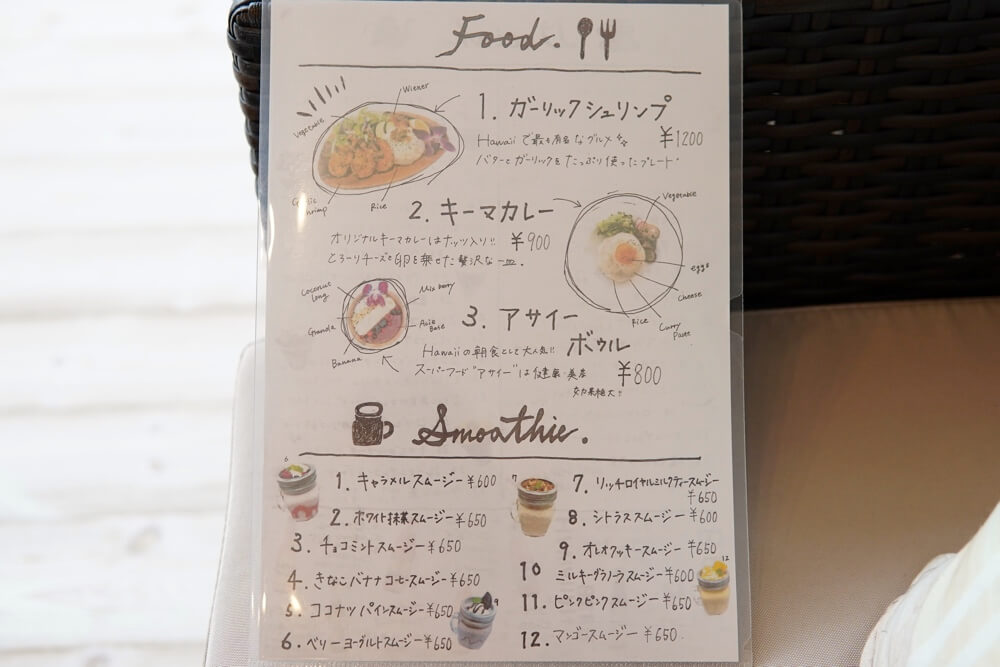 Food.
Wiener
Vegetable
1. ガーリックシュリンプ
Hawaii で最も有名なグルメ
¥1200
バターとガーリックをたっぷり使ったプレート
Garlic Shrimp
Rice
2. キーマカレー
Vegetable
オリジナルキーマカレーはナッツ入り!!
¥900
とろーりチーズと卵を乗せた贅沢な一皿。
eggs
Cheese
Rice
Curry
Coconut
Long
Mix berry
Granola
Base
Banana
3. アサイー
ボウル
Hawaiiの朝食として大人気!!
スーパーフード"アサイー"は健康・美容
効果絶大!!
¥800
Smoothie.
6
1. キャラメルスムージー ¥600
2. ホワイト抹茶スムージー ¥650
3. チョコミントスムージー ¥650
4. きなこバナナコーヒースムージー ¥650
5. ココナツパインスムージー ¥650
6. ベリーヨーグルトスムージー ¥650
7
7. リッチロイヤルミルクティースムージー
¥650
8. シトラススムージー ¥600
9. オレオクッキースムージー ¥650
10 ミルキーグラノーラスムージー ¥600
12
11. ピンクピンクスムージー ¥650
9
12. マンゴースムージー ¥650.